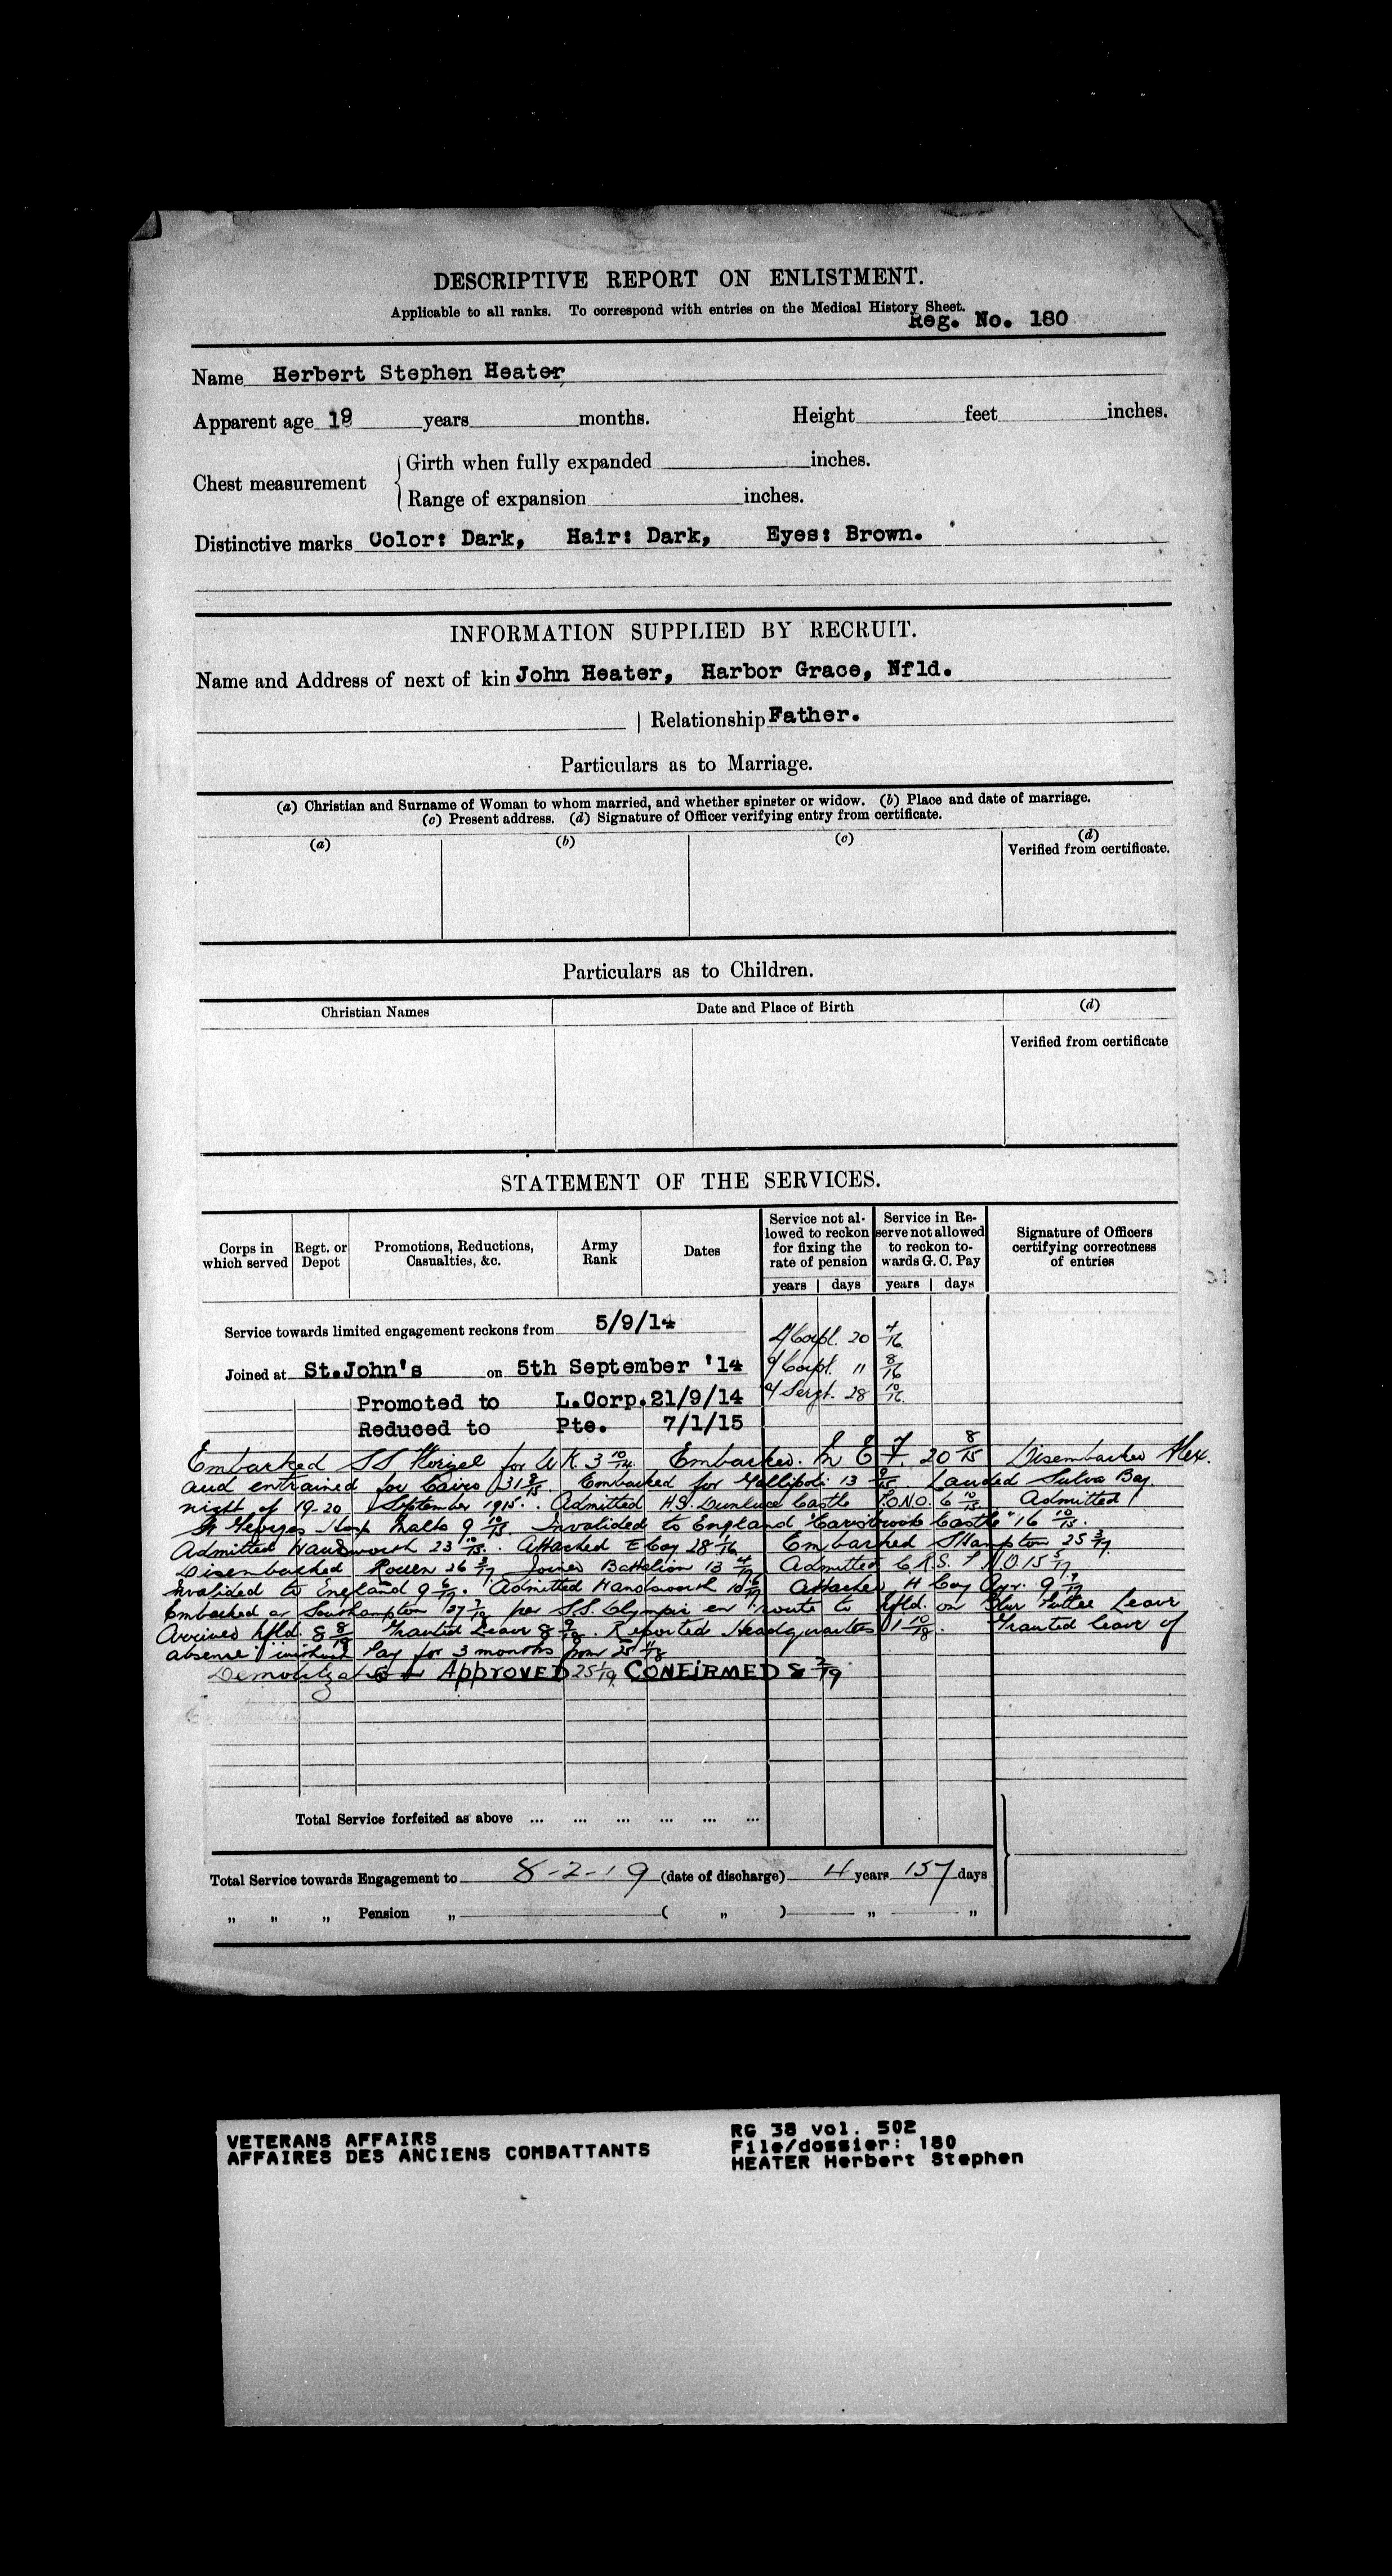 DESCRIPTIVE REPORT ON ENLISTMENT.
Applicable to all ranks. To correspond with entries on the Medical History Sheet.
Reg. No. 180
Name Herbert Stephen Heater
Apparent age 19 years months. Height feet inches.
Chest measurement
Girth when fully expanded inches.
Range of expansion inches.
Distinctive marks Color: Dark, Hair: Dark, Eyes: Brown.
INFORMATION SUPPLIED BY RECRUIT.
Name and Address of next of kin John Heater, Harbor Grace, Nfld.
| Relationship Father.
Particulars as to Marriage.
(a) Christian and Surname of Woman to whom married, and whether spinster or widow. (b) Place and date of marriage.
(c) Present address. (d) Signature of Officer verifying entry from certificate.
(a) (b) (c) (d)
Verified from certificate.
Particulars as to Children.
Christian Names Date and Place of Birth (d)
Verified from certificate
STATEMENT OF THE SERVICES.
Corps in which served Regt. or Depot Promotions, Reductions, Casualties, &c. Army Rank Dates Service not allowed to reckon for fixing the rate of pension Service in Reserve not allowed to reckon towards G. C. Pay Signature of Officers certifying correctness of entries
years days years days
Service towards limited engagement reckons from 5/9/14
L/Corpl. 20 4/16
Joined at St.John's on 5th September '14
Corpl. 11 8/16
Promoted to L.Corp. 21/9/14
Sergt. 28 10/16
Reduced to Pte. 7/1/15
Embarked SS Florizel for U K 3 10/14 Embarked. M E F. 20 8/15 Disembarked Alex.
and entrained for Cairo 31 8/15 Embarked for Gallipoli 13 9/15 Landed Suvla Bay
night of 19-20 September 1915. Admitted H.S. Dunluce Castle 6 10/15 Admitted
St Georges Hosp Malta 9 10/15. Invalided to England "Carisbrook Castle" 16 10/15.
Admitted Wandsworth 23 10/15. Attached E Coy 28 1/16 Embarked S'Hampton 25 3/17
Disembarked Rouen 26 3/17 Joined Battalion 13 4/17 Admitted C.R.S. 15 5/17
Invalided to England 9 6/17. Admitted Wandsworth 10 6/17 Attached H Coy Ayr. 9
Embarked at Southampton 27 7/18 per S.S. Olympic en route to Nfld. on Blue Puttee Leave
Arrived Nfld 8 8/18 Granted Leave 8 Reported Headquarters 1 10/18. Granted leave of
absence without Pay for 3 months from 25 11/18
Demobilization APPROVED 25 1/19 CONFIRMED 8 2/19
Total Service forfeited as above ... ... ... ... ... ...
Total Service towards Engagement to 8-2-19 (date of discharge) 4 years 157 days
„ „ „ Pension „ ( „ ) „ „
VETERANS AFFAIRS
AFFAIRES DES ANCIENS COMBATTANTS
RG 38 vol. 502
File/dossier: 180
HEATER Herbert Stephen